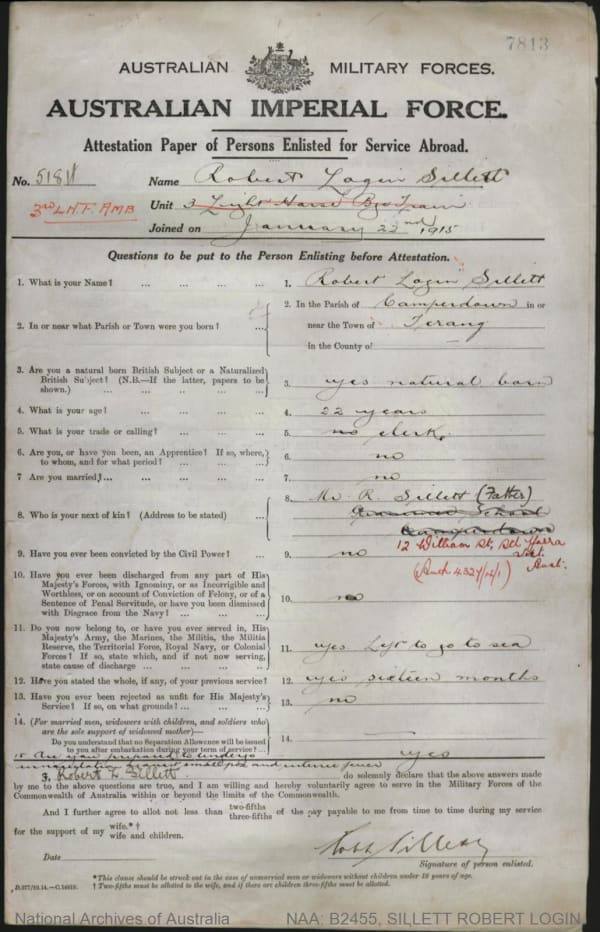 7813
AUSTRALIAN MILITARY FORCES.
AUSTRALIAN IMPERIAL FORCE.
Attestation Paper of Persons Enlisted for Service Abroad.
No. Name Robert Login Sillett
3rd L.H.F. AMB Unit 3 Light Horse Bge Train
Joined on January 22nd 1915
Questions to be put to the Person Enlisting before Attestation.
1. What is your Name? ... ... ... ... 1. Robert Login Sillett
2. In or near what Parish or Town were you born? ... 2. In the Parish of Camperdown in or
near the Town of Terang
in the County of
3. Are you a natural born British Subject or a Naturalized
British Subject? (N.B.—If the latter, papers to be
shown.) ... ... ... ... 3. yes natural born
4. What is your age? ... ... ... ... 4. 22 years
5. What is your trade or calling? ... ... ... 5. no clerk.
6. Are you, or have you been, an Apprentice? If so, where,
to whom, and for what period? ... ... ... 6. no
7. Are you married? ... ... ... ... 7. no
8. Who is your next of kin? (Address to be stated) ... 8. Mr R. Sillett (Father)
Grammar School
Camperdown
12 William St, Sth Yarra
Vic. Aust.
9. Have you ever been convicted by the Civil Power? ... 9. no
10. Have you ever been discharged from any part of His
Majesty's Forces, with Ignominy, or as Incorrigible and
Worthless, or on account of Conviction of Felony, or of a
Sentence of Penal Servitude, or have you been dismissed
with Disgrace from the Navy? ... ... ... 10. no
11. Do you now belong to, or have you ever served in, His
Majesty's Army, the Marines, the Militia, the Militia
Reserve, the Territorial Force, Royal Navy, or Colonial
Forces? If so, state which, and if not now serving,
state cause of discharge ... ... ... 11. yes Left to go to sea
12. Have you stated the whole, if any, of your previous service? 12. yes sixteen months
13. Have you ever been rejected as unfit for His Majesty's
Service? If so, on what grounds? ... ... ... 13. no
14. (For married men, widowers with children, and soldiers who
are the sole support of widowed mother)—
Do you understand that no Separation Allowance will be issued
to you after embarkation during your term of service? ... 14.
15 Are you prepared to undergo
inoculation against small pox and enteric fever yes
I, Robert L. Sillett do solemnly declare that the above answers made
by me to the above questions are true, and I am willing and hereby voluntarily agree to serve in the Military Forces of the
Commonwealth of Australia within or beyond the limits of the Commonwealth.
And I further agree to allot not less than two-fifths three-fifths of the pay payable to me from time to time during my service
for the support of my wife.*† wife and children.
Robt Sillett
Date Signature of person enlisted.
*This clause should be struck out in the case of unmarried men or widowers without children under 18 years of age.
† Two-fifths must be allotted to the wife, and if there are children three-fifths must be allotted.
National Archives of Australia NAA: B2455, SILLETT ROBERT LOGIN